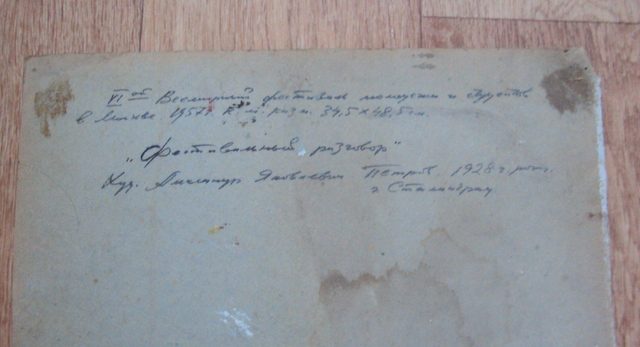 VI ой Всемирный фестиваль молодежи и студентов
в Москве 1957г. К. м. разм. 34,5 x 48,5 см.
"Фестивальный разговор"
Худ. Александр Яковлевич Петров, 1928 г. рож.
г. Сталинград